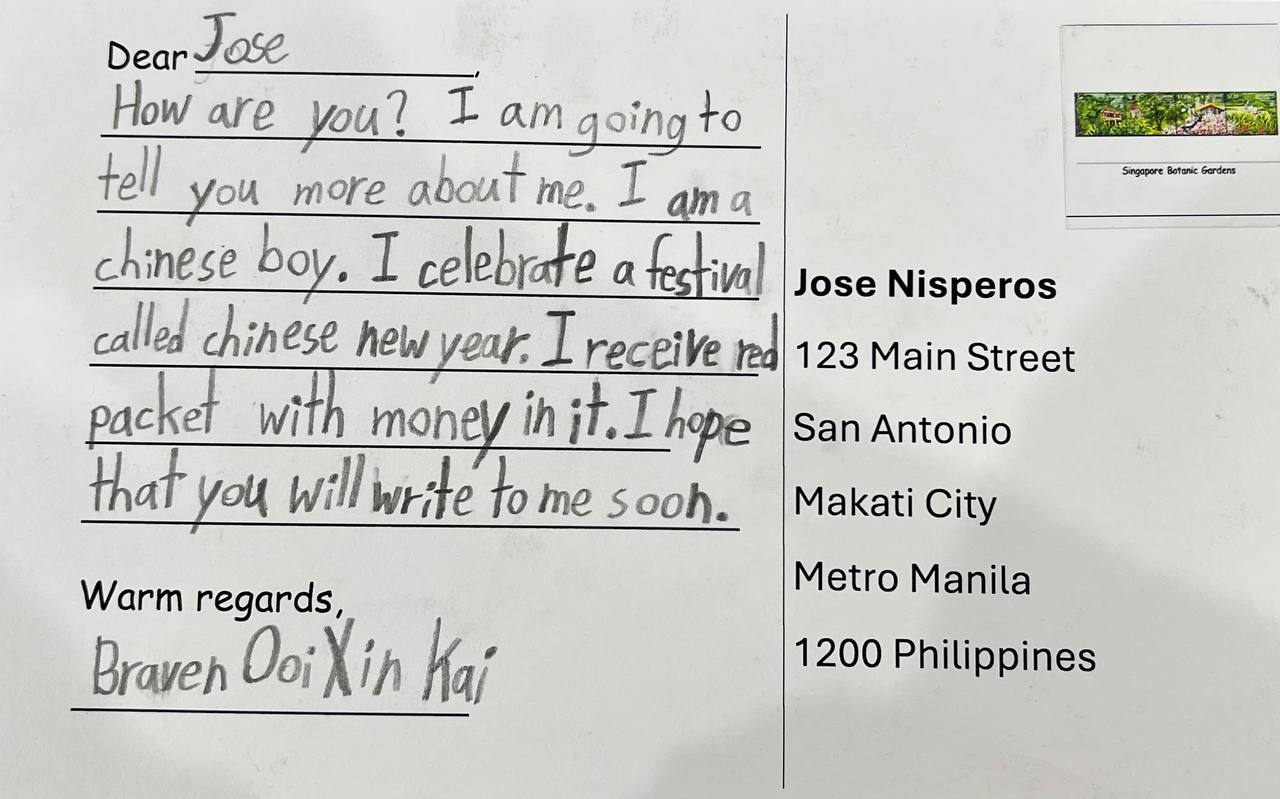 Dear Jose,
How are you? I am going to
tell you more about me. I am a
chinese boy. I celebrate a festival
called chinese new year. I receive red
packet with money in it. I hope
that you will write to me soon.
Warm regards,
Braven Ooi Xin Kai
Singapore Botanic Gardens
Jose Nisperos
123 Main Street
San Antonio
Makati City
Metro Manila
1200 Philippines